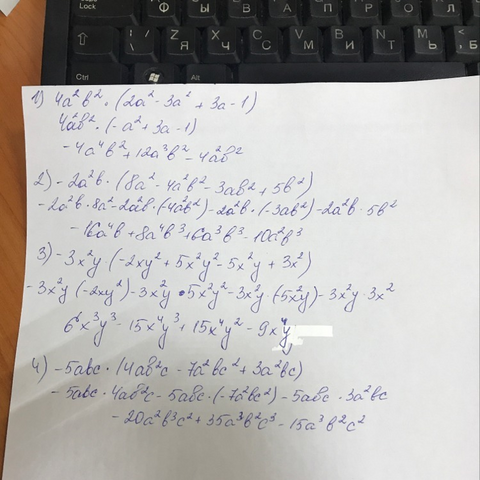 Lock
Ф
Ы
В
А
П
Р
О
Л
Z Я
X Ч
C С
V М
B И
N Т
M Ь
Ctrl
Alt
1) 4a²b² · (2a² - 3a² + 3a - 1)
4a²b² · (-a² + 3a - 1)
- 4a⁴b² + 12a³b² - 4a²b²
2) - 2a²b · (8a² - 4a²b² - 3ab² + 5b²)
- 2a²b · 8a² - 2a²b · (-4a²b²) - 2a²b · (-3ab²) - 2a²b · 5b²
- 16a⁴b + 8a⁴b³ + 6a³b³ - 10a²b³
3) - 3x²y · (-2xy² + 5x²y² - 5x²y + 3x²)
- 3x²y (-2xy²) - 3x²y · 5x²y² - 3x²y · (-5x²y) - 3x²y · 3x²
6x³y³ - 15x⁴y³ + 15x⁴y² - 9x⁴y
4) - 5abc · (4ab²c - 7a²bc² + 3a²bc)
- 5abc · 4ab²c - 5abc · (-7a²bc²) - 5abc · 3a²bc
- 20a²b³c² + 35a³b²c³ - 15a³b²c²